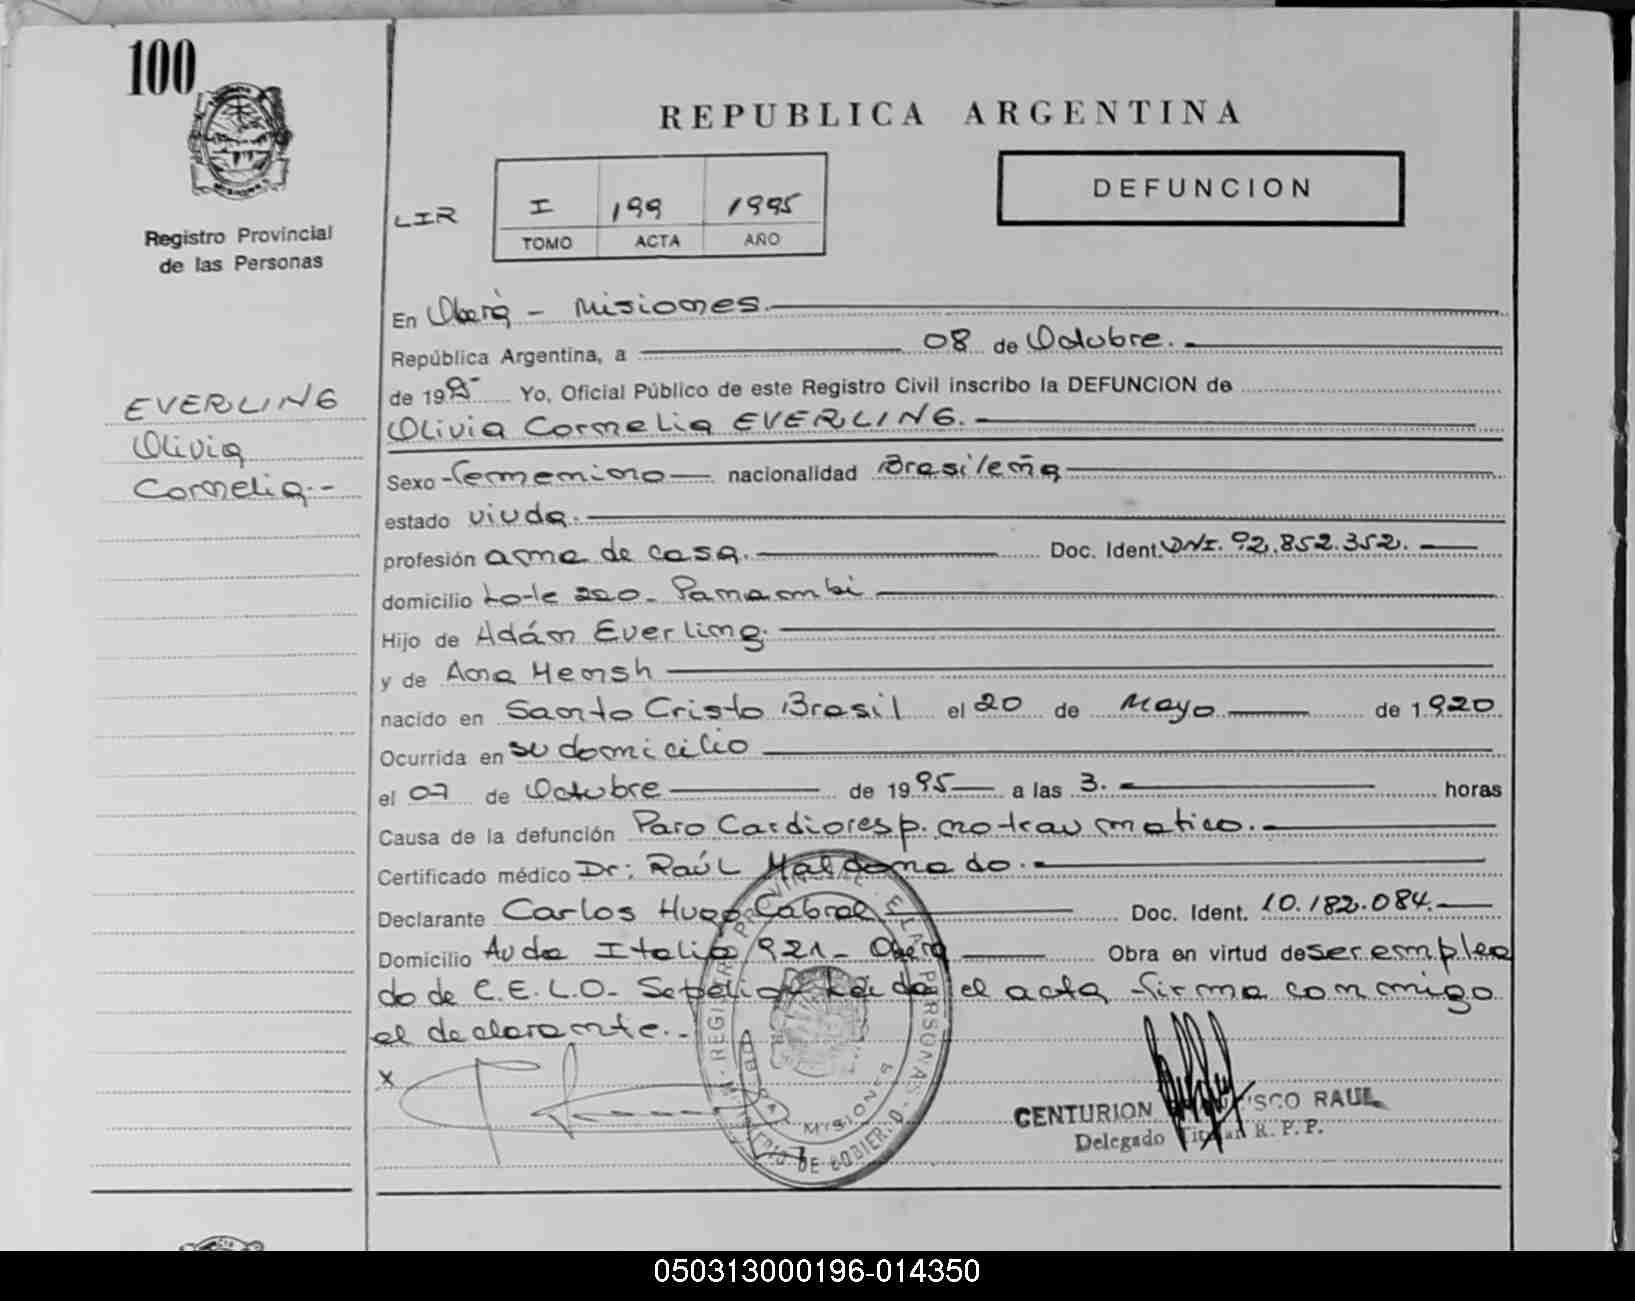 100
REPUBLICA ARGENTINA
DEFUNCION
LIR
I 199 1995
TOMO ACTA AÑO
Registro Provincial
de las Personas
EVERLING
Olivia
Cornelia.-
En Oberá - Misiones.
República Argentina, a 08 de Octubre.
de 1995 Yo, Oficial Público de este Registro Civil inscribo la DEFUNCION de
Olivia Cornelia EVERLING.
Sexo femenino nacionalidad Brasileña
estado viuda.
profesión ama de casa. Doc. Ident. DNI. 92.852.352.
domicilio Lote 220 - Panambi
Hijo de Adán Everling.
y de Ana Hensh
nacido en Santo Cristo Brasil el 20 de Mayo de 1920
Ocurrida en su domicilio
el 07 de Octubre de 1995 a las 3. horas
Causa de la defunción Paro Cardioresp. no traumatico.
Certificado médico Dr: Raúl Maldonado.
Declarante Carlos Hugo Cabral Doc. Ident. 10.182.084.
Domicilio Avda Italia 921 - Oberá Obra en virtud de ser emplea
do de C.E.L.O. Sepelio Leida el acta firma conmigo
el declarante.-
x
REGISTRO PROVINCIAL DE LAS PERSONAS
MINISTERIO DE GOBIERNO
OBERA
MISIONES
CENTURION RAUL
Delegado Titular R. P. P.
050313000196-014350